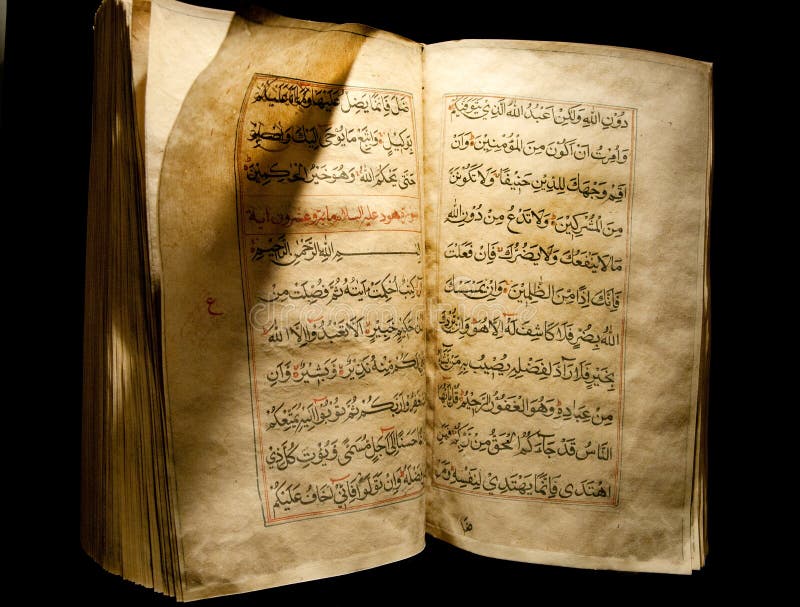 دُونِ اللهِ وَلٰكِنْ اَعْبُدُ اللهَ الَّذِي يَتَوَفّٰيكُمْ
وَاُمِرْتُ اَنْ اَكُونَ مِنَ الْمُؤْمِنِينَ وَاَنْ
اَقِمْ وَجْهَكَ لِلدِّينِ حَنِيفًا وَلَا تَكُونَنَّ
مِنَ الْمُشْرِكِينَ وَلَا تَدْعُ مِنْ دُونِ اللهِ
مَا لَا يَنْفَعُكَ وَلَا يَضُرُّكَ فَاِنْ فَعَلْتَ
فَاِنَّكَ اِذًا مِنَ الظّٰلِمِينَ وَاِنْ يَمْسَسْكَ
اللهُ بِضُرٍّ فَلَا كَاشِفَ لَهُ اِلَّا هُوَ وَاِنْ يُرِدْكَ
بِخَيْرٍ فَلَا رَآدَّ لِفَضْلِهِ يُصِيبُ بِهِ مَنْ يَشَآءُ
مِنْ عِبَادِهِ وَهُوَ الْغَفُورُ الرَّحِيمُ قُلْ يَآ اَيُّهَا
النَّاسُ قَدْ جَآءَكُمُ الْحَقُّ مِنْ رَبِّكُمْ فَمَنِ
اهْتَدٰى فَاِنَّمَا يَهْتَدِي لِنَفْسِهِ وَمَنْ
ضَلَّ فَاِنَّمَا يَضِلُّ عَلَيْهَا وَمَآ اَنَا عَلَيْكُمْ
بِوَكِيلٍ وَاتَّبِعْ مَا يُوحٰى اِلَيْكَ وَاصْبِرْ
حَتّٰى يَحْكُمَ اللهُ وَهُوَ خَيْرُ الْحَاكِمِينَ
سورة هود عليه السلام مائة وعشرون آية
بِسْمِ اللهِ الرَّحْمٰنِ الرَّحِيمِ
كِتٰبٌ اُحْكِمَتْ اٰيَاتُهُ ثُمَّ فُصِّلَتْ مِنْ
خَبِيرٍ اَلَّا تَعْبُدُوٓا اِلَّا اللهَ
لَكُمْ مِنْهُ نَذِيرٌ وَبَشِيرٌ وَاَنِ
اسْتَغْفِرُوا رَبَّكُمْ ثُمَّ تُوبُوٓا اِلَيْهِ يُمَتِّعْكُمْ
مَتَاعًا حَسَنًا اِلٰٓى اَجَلٍ مُسَمًّى وَيُؤْتِ كُلَّ ذِي
فَضْلَهُ وَاِنْ تَوَلَّوْا فَاِنِّيٓ اَخَافُ عَلَيْكُمْ
ع